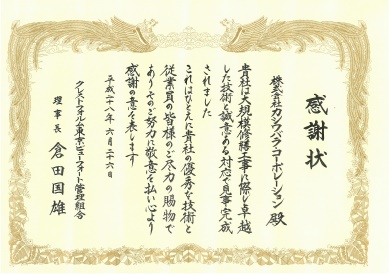 感謝状
株式会社カシワバラ・コーポレーション 殿
貴社は大規模修繕工事に際し卓越
した技術と誠意ある対応で見事完成
されました
これはひとえに貴社の優秀な技術と
従業員の皆様のご尽力の賜物で
ありそのご努力に敬意を払い心より
感謝の意を表します
平成二十八年 六月二十六日
クレストフォルム東京ビューナイト管理組合
理事長 倉田国雄